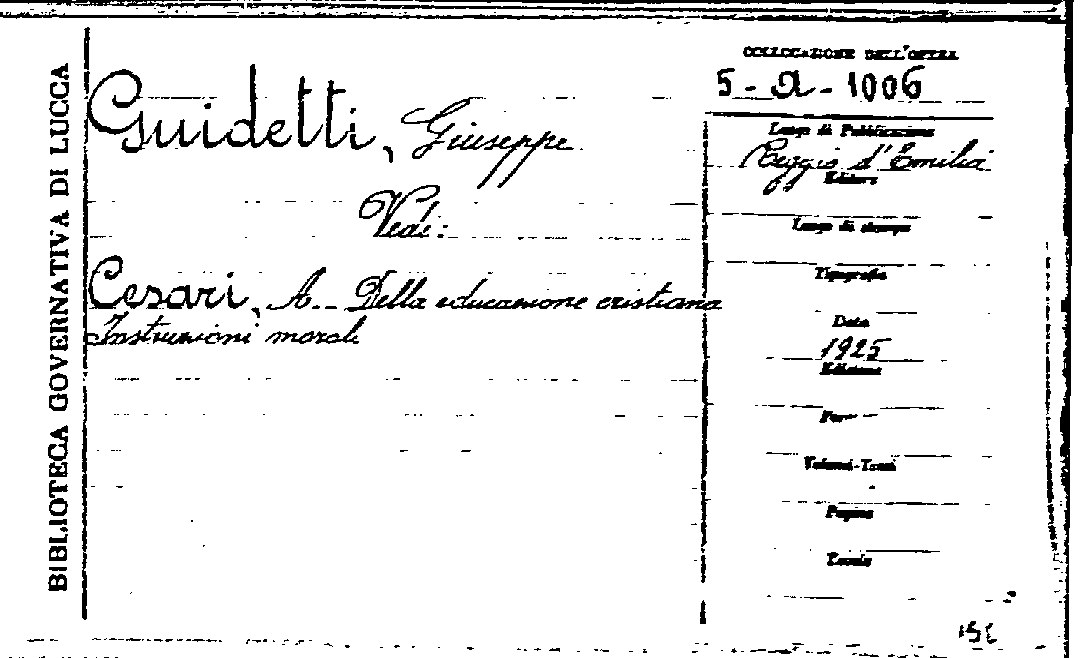 BIBLIOTECA GOVERNATIVA DI LUCCA
Guidetti, Giuseppe
Vedi:
Cesari, A. Della educazione cristiana
Instruzioni morali
COLLOCAZIONE DELL'OPERA
5-A-1006
Luogo di Pubblicazione
Reggio d'Emilia
Editore
Luogo di stampa
Tipografia
Data
1925
Edizione
Volumi-Tomi
Pagine
Tavole